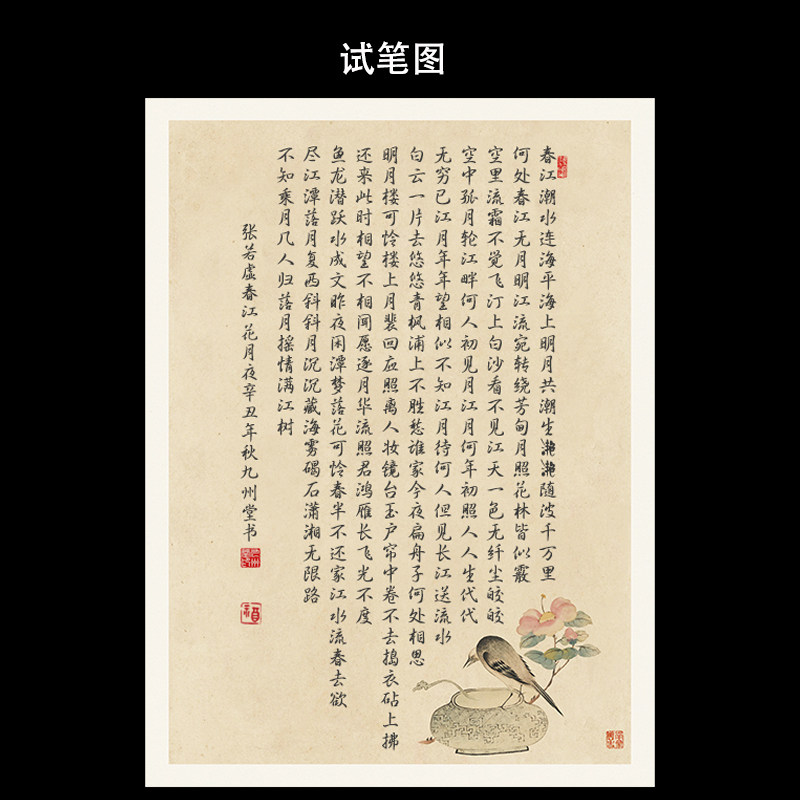 试笔图
春江潮水连海平海上明月共潮生滟滟随波千万里
何处春江无月明江流宛转绕芳甸月照花林皆似霰
空里流霜不觉飞汀上白沙看不见江天一色无纤尘皎皎
空中孤月轮江畔何人初见月江月何年初照人人生代代
无穷已江月年年望相似不知江月待何人但见长江送流水
白云一片去悠悠青枫浦上不胜愁谁家今夜扁舟子何处相思
明月楼可怜楼上月裴回应照离人妆镜台玉户帘中卷不去捣衣砧上拂
还来此时相望不相闻愿逐月华流照君鸿雁长飞光不度
鱼龙潜跃水成文昨夜闲潭梦落花可怜春半不还家江水流春去欲
尽江潭落月复西斜斜月沉沉藏海雾碣石潇湘无限路
不知乘月几人归落月摇情满江树
张若虚春江花月夜辛丑年秋九州堂书